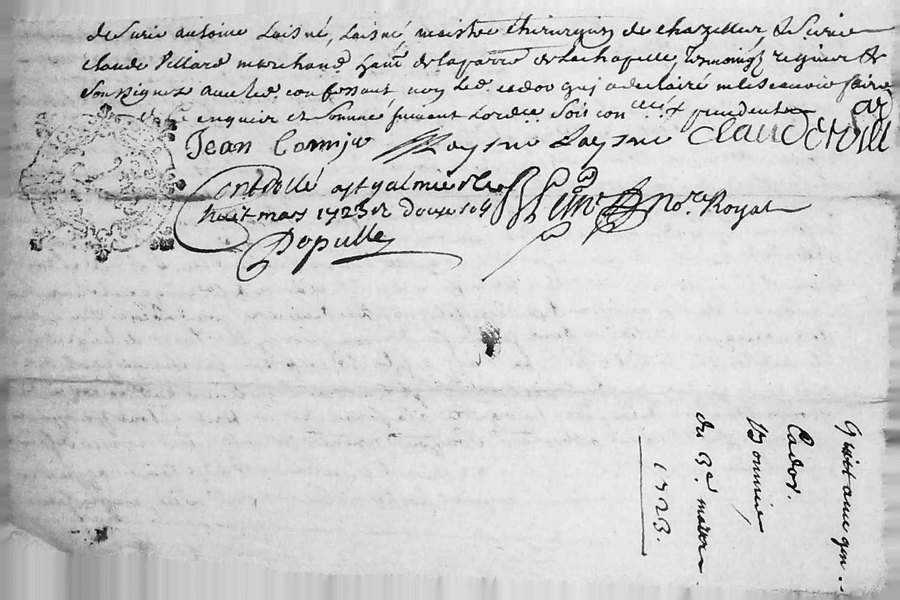 de Surie antoine Laisné, Laisné maistre chirurgien de chazelles, & Surie
claude Villard marchand habt de la parre de la chapelle, temoings requis &
Soussignes avec led. confessant non led. cador qui a declairé ne le scavoir faire
de ce enquis et sommé suivant Lordce Sois con
Jean Bonnje Laysne Laysne claude vill ar
Contrôllé a st galmier le
huit mars 1723 R douze sols not. Royal
Dopulle
Quittance
Cador.
Bonnie,
du 3e. mars
1723.